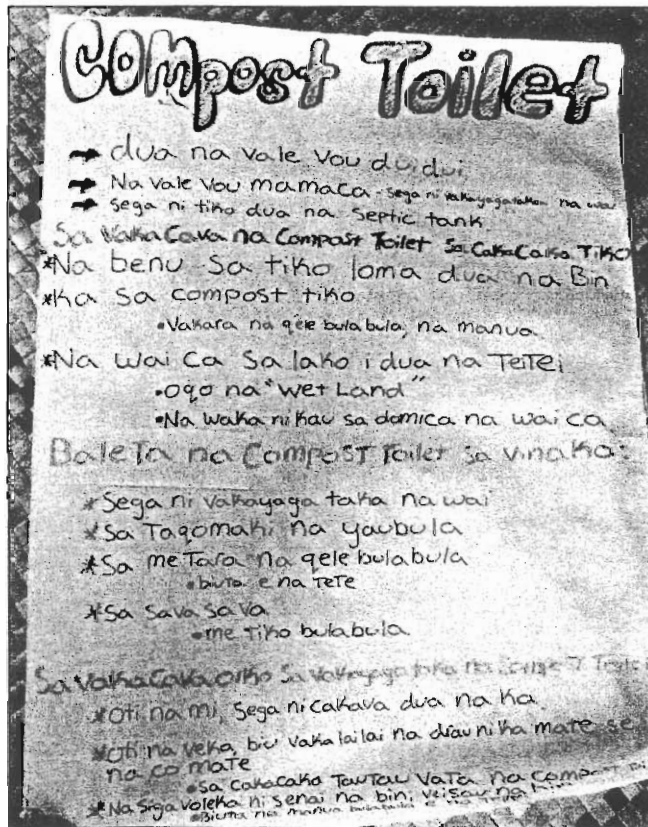 Compost Toilet
→ dua na vale vou duidui
→ Na vale vou mamaca - sega ni vakayagataka na wai
→ sega ni tiko dua na septic tank
Sa vakacava na Compost Toilet sa cakacaka tiko
*Na benu sa tiko loma dua na Bin
*Ka sa compost tiko
•Vakara na qele bulabula, na manua
*Na wai ca sa lako i dua na Teitei
•Oqo na "Wet Land"
•Na waka ni kau sa domica na wai ca
Baleta na Compost Toilet sa vinaka:
*Sega ni vakayaga taka na wai
*Sa Taqomaki na yaubula
*Sa me Tara na qele bulabula
•biuta e na TeTe
*Sa sava sava
•me Tiko bulabula
Sa vakacava o iko sa vakayaga taka na Toilet
*Oti na mi, sega ni cakava dua na ka
*Oti na veka, biu vaka lailai na drau ni ka mate se
na co mate
•Sa cakacaka Tautau Vata na compost
*Na siga voleka ni senai na bini, veisau na bini
•Biuta na manua bulabula e na